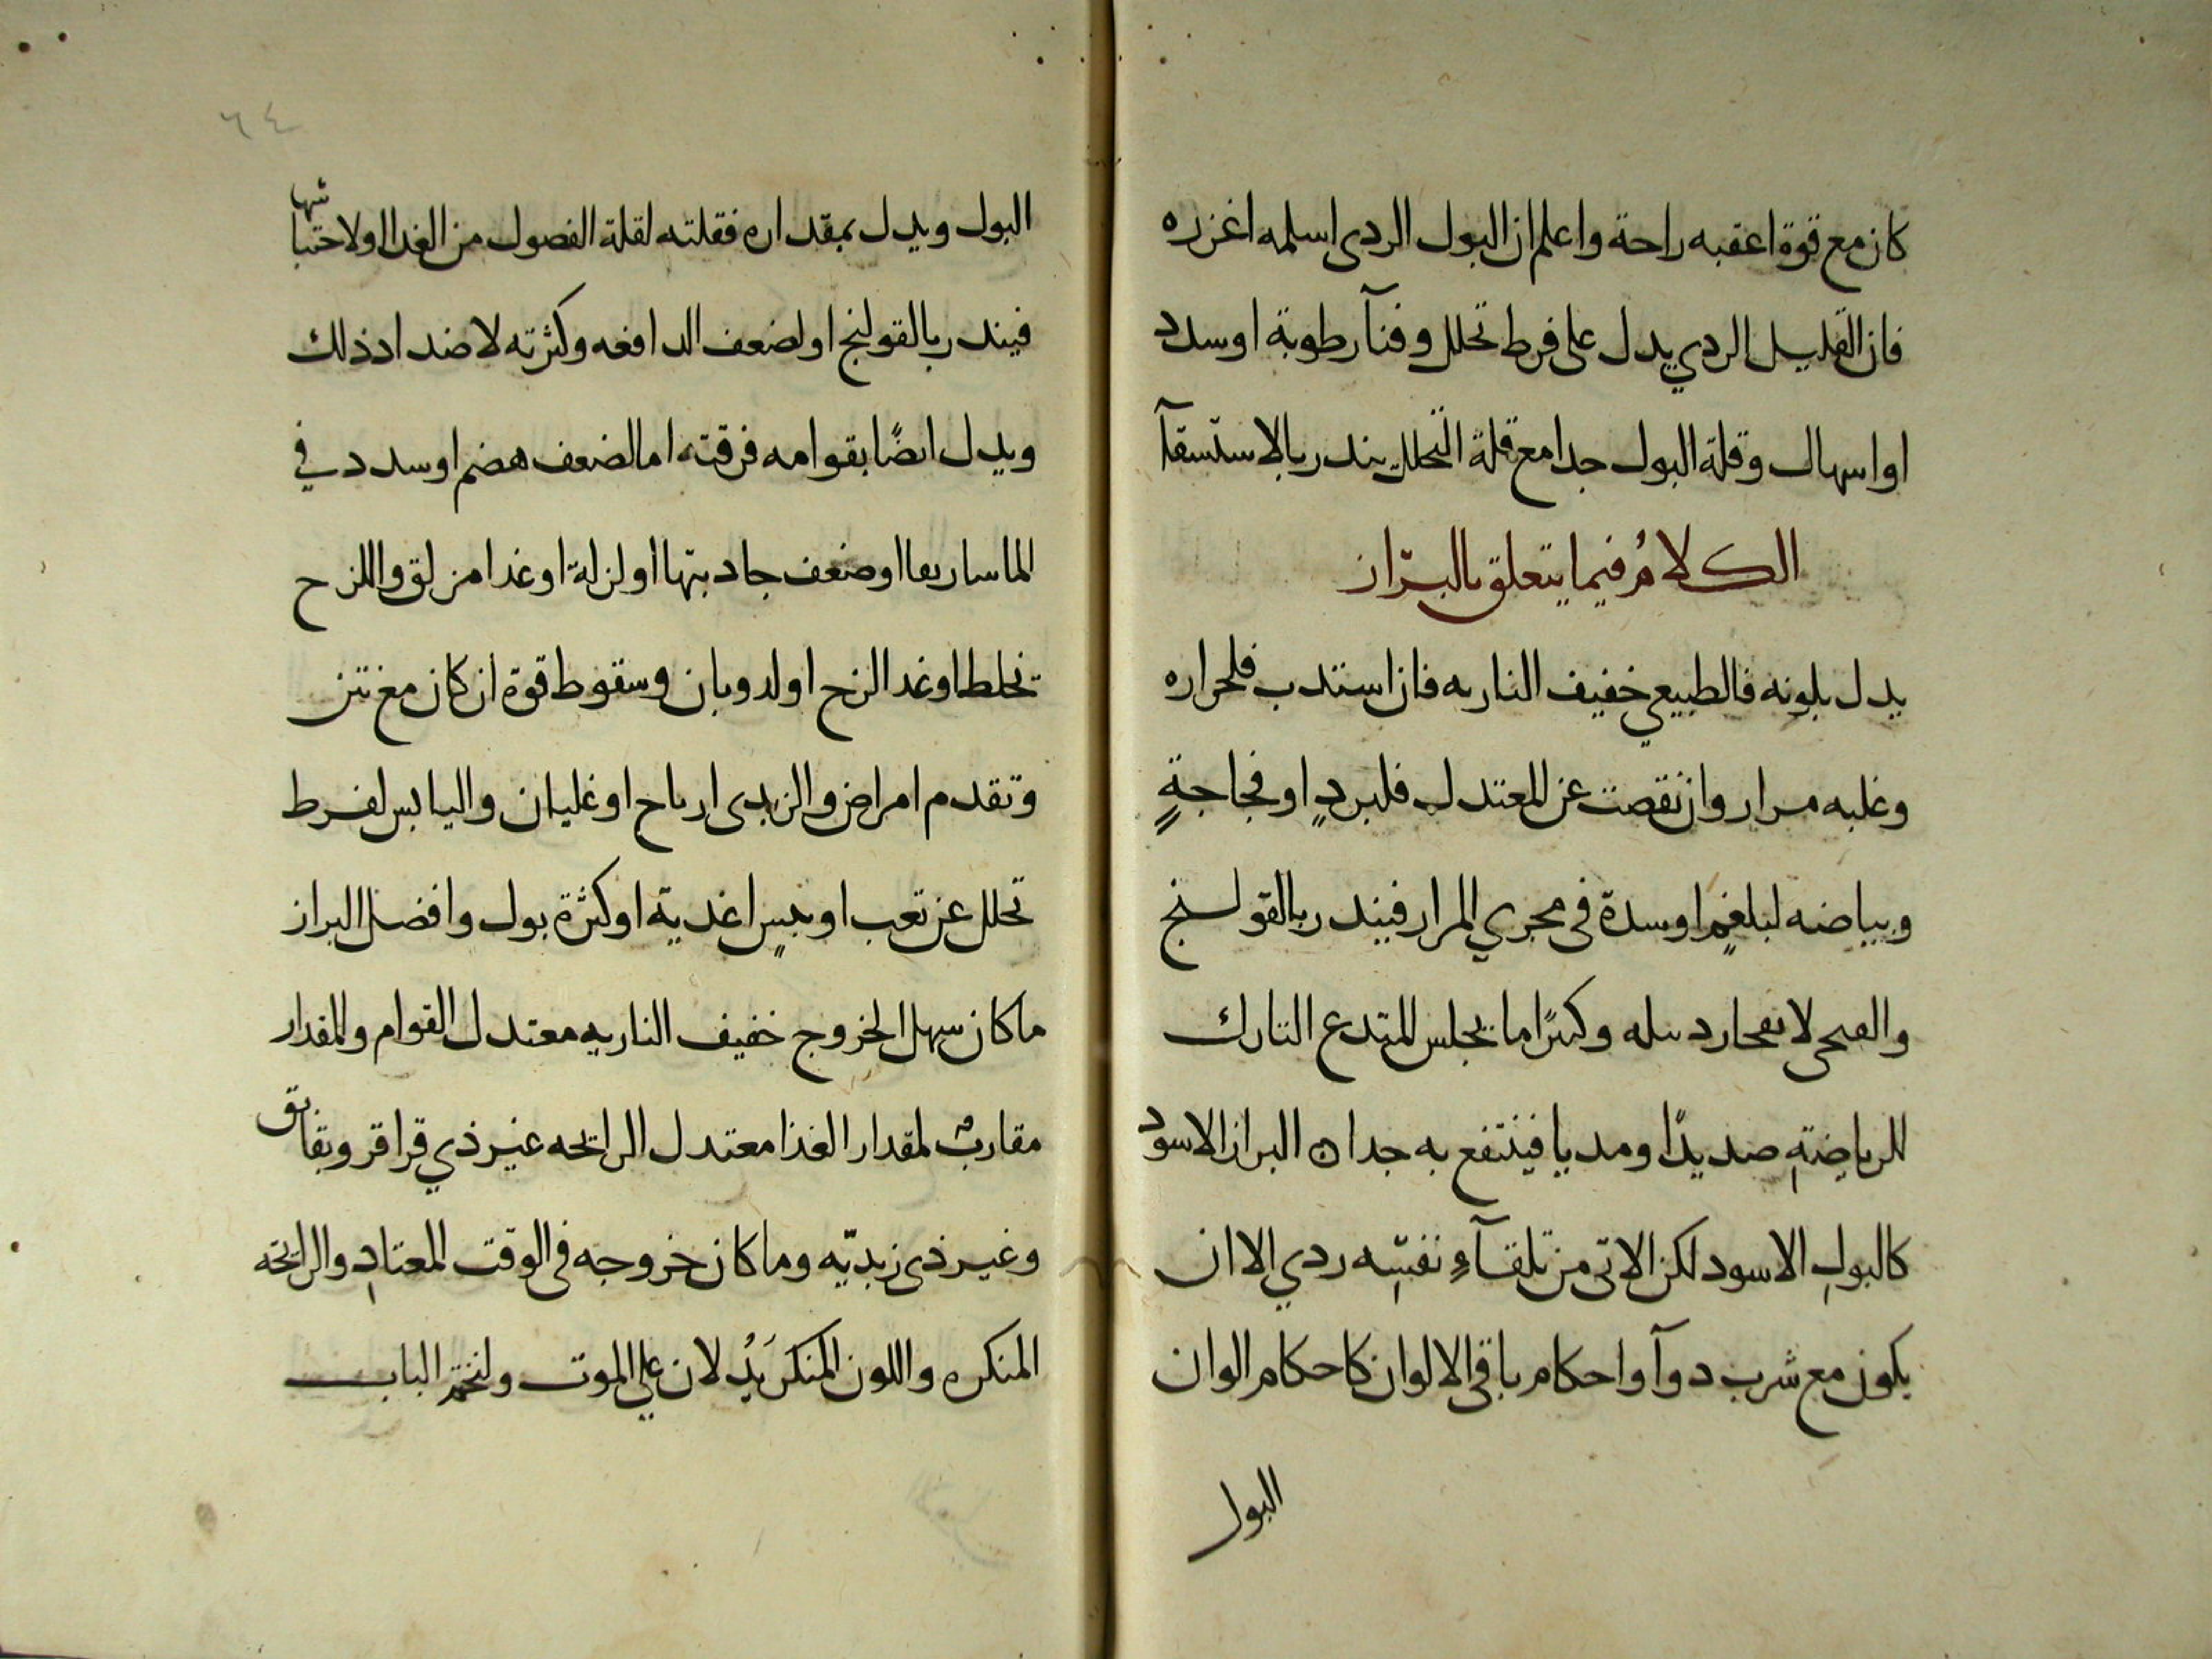 كان مع قوة اعقبه راحة واعلم ان البول الردى اسلمه اغزره
فان القليل الردي يدل على فرط تحلل وفنآ رطوبة او سدد
او اسهال وقلة البول جدا مع قلة التحلل يندر بالاستسقآ
الكلامُ فيما يتعلق بالبرّاز
يدل بلونه فالطبيعي خفيف الناريه فان استدب فلحراره
وغلبه مرار وان نقصت عن المعتدل فلبردٍ او فجاجةٍ
وبياضه لبلغمٍ او سدة فى مجري المرار فيندر بالقولنج
والقيحى لانفجار دبيله وكثيرًا ما يجلس المتدع التارك
للرياضتهِ صديدًا ومديا فينتفع به جدا ن البراز الاسود
كالبولِ الاسود لكن الاتى من تلقآءِ نفسِه ردي الا ان
يكون مع شرب دوآ واحكام باقي الالوان كاحكام الوان
البول
٦٤
البول ويدل بمقداره فقلته لقلة الفصول من الغدا او لاحتباسها
فيندر بالقولنج او لضعف الدافعه وكثرته لاضداد ذلك
ويدل ايضًا بقوامه فرقته اما لضعف هضم او سدد في
الماساريقا او ضعف جادبتها او لنزلة او غدا مزلق واللزج
لخلط او غدا لزج او لدوبان وسقوط قوة ان كان مع نتن
وتقدم امراض والزبدى ارياح او غليان واليابس لفرط
تحلل عن تعب او يبسٍ اغدية او كثرة بول وافضل البراز
ما كان سهل الخروج خفيف الناريه معتدل القوام والمقدار
مقاربٌ لمقدار الغذا معتدل الرايحه غير ذي قراقر وبقابق
وغير ذى زبديّه وما كان خروجه فى الوقت المعتادِ والرايحه
المنكره واللون المنكر يَدُلان علي الموت ولنختم الباب